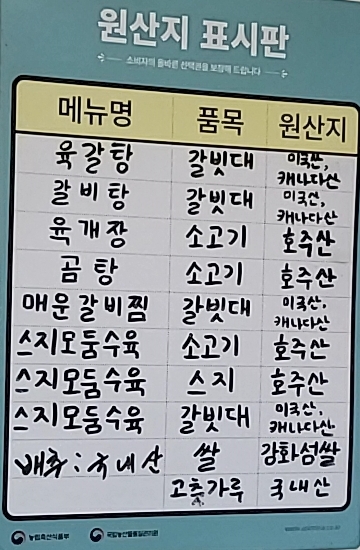 원산지 표시판
소비자의 올바른 선택권을 보장해 드립니다
메뉴명 품목 원산지
육갈탕 갈빗대 미국산, 캐나다산
갈비탕 갈빗대 미국산, 캐나다산
육개장 소고기 호주산
곰탕 소고기 호주산
매운갈비찜 갈빗대 미국산, 캐나다산
스지모둠수육 소고기 호주산
스지모둠수육 스지 호주산
스지모둠수육 갈빗대 미국산, 캐나다산
배추:국내산 쌀 강화섬쌀
고춧가루 국내산
농림축산식품부 국립농산물품질관리원